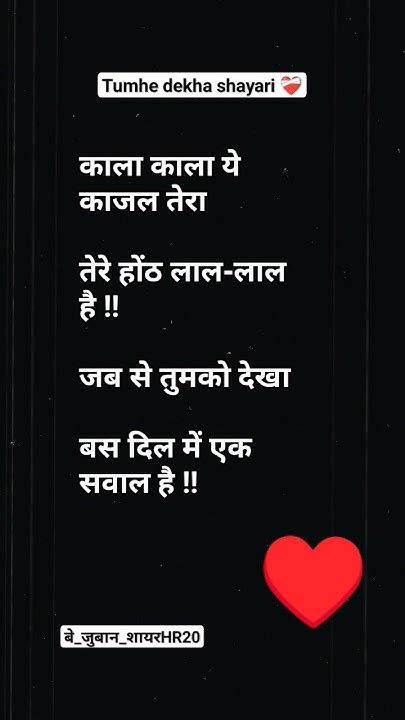 Tumhe dekha shayari ❤️‍🩹
काला काला ये
काजल तेरा
तेरे होंठ लाल-लाल
है !!
जब से तुमको देखा
बस दिल में एक
सवाल है !!
बे_जुबान_शायरHR20